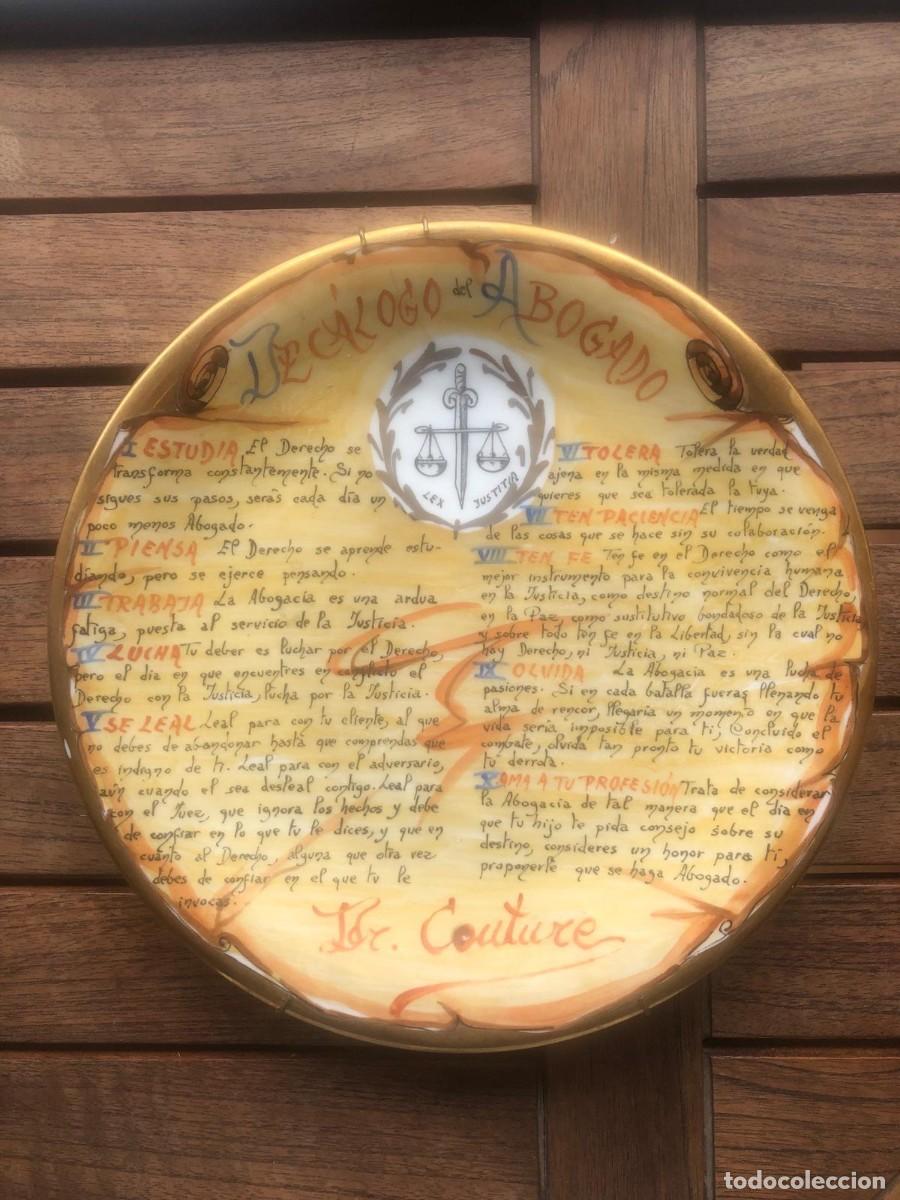 DECÁLOGO del ABOGADO
LEX JUSTITIA
I ESTUDIA El Derecho se
transforma constantemente. Si no
sigues sus pasos, serás cada día un
poco menos Abogado.
II PIENSA El Derecho se aprende estu-
diando, pero se ejerce pensando.
III TRABAJA La Abogacía es una ardua
fatiga, puesta al servicio de la Justicia.
IV LUCHA Tu deber es luchar por el Derecho,
pero el día en que encuentres en conflicto el
Derecho con la Justicia, lucha por la Justicia.
V SE LEAL Leal para con tu cliente, al que
no debes de abandonar hasta que comprendas que
es indigno de ti. Leal para con el adversario,
aún cuando el sea desleal contigo. Leal para
con el Juez, que ignora los hechos y debe
de confiar en lo que tu le dices, y que en
cuanto al Derecho, alguna que otra vez
debes de confiar en el que tu le
invocas.
VI TOLERA Tolera la verdad
ajena en la misma medida en que
quieres que sea tolerada la tuya.
VII TEN PACIENCIA El tiempo se venga
de las cosas que se hace sin su colaboración.
VIII TEN FE Ten fe en el Derecho como el
mejor instrumento para la convivencia humana
en la Justicia, como destino normal del Derecho,
en la Paz como sustitutivo bondadoso de la Justicia
y sobre todo ten fe en la Libertad, sin la cual no
hay Derecho, ni Justicia, ni Paz.
IX OLVIDA La Abogacía es una lucha de
pasiones. Si en cada batalla fueras llenando tu
alma de rencor, llegaría un momento en que la
vida sería imposible para ti, Concluído el
combate, olvida tan pronto tu victoria como
tu derrota.
X AMA A TU PROFESIÓN Trata de considerar
la Abogacía de tal manera que el día en
que tu hijo te pida consejo sobre su
destino, consideres un honor para ti,
proponerle que se haga Abogado.
Dr. Couture
todocoleccion